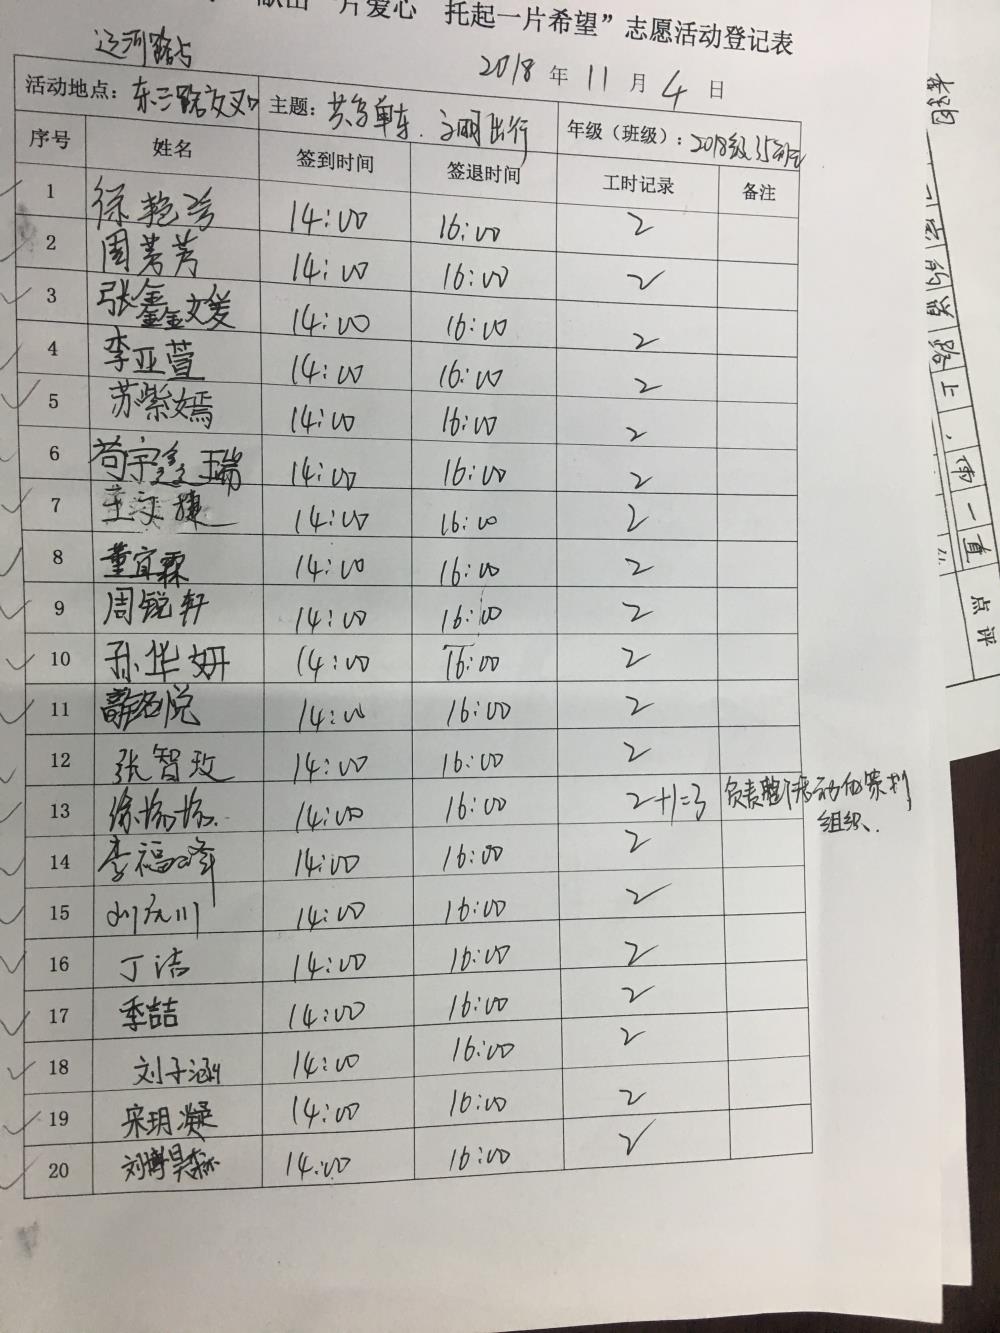 献出一片爱心 托起一片希望”志愿活动登记表
运河路与
2018 年 11 月 4 日
活动地点： 东三路交叉口 主题： 共享单车．文明出行 年级（班级）： 2018级
序号 姓名 签到时间 签退时间 工时记录 备注
1 徐艳 14:00 16:00 2
2 周 芳 14:00 16:00 2
3 张鑫媛 14:00 16:00 2
4 李亚萱 14:00 16:00 2
5 苏紫嫣 14:00 16:00 2
6 苟宇鑫瑞 14:00 16:00 2
7 王文捷 14:00 16:00 2
8 董宜霖 14:00 16:00 2
9 周锐轩 14:00 16:00 2
10 孙华妍 14:00 16:00 2
11 薛名悦 14:00 16:00 2
12 张智玫 14:00 16:00 2
13 徐杨杨. 14:00 16:00 2+1=3 负责整个活动的策划
组织.
14 李福峰 14:00 16:00 2
15 刘庆川 14:00 16:00 2
16 丁洁 14:00 16:00 2
17 季喆 14:00 16:00 2
18 刘子涵 14:00 16:00 2
19 宋玥凝 14:00 16:00 2
20 刘博昊霖 14:00 16:00 2
上，第一直
点评